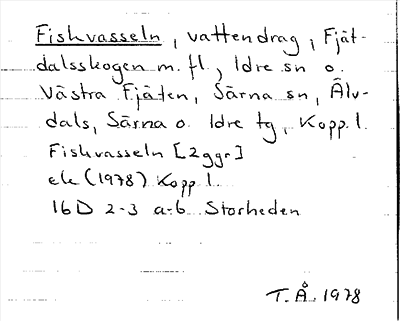 Fiskvasseln, vattendrag, Fjät-
dalsskogen m.fl., Idre sn o.
Västra Fjäten, Särna sn, Älv-
dals, Särna o. Idre tg, Kopp.l.
Fiskvasseln [2ggr]
ek (1978) Kopp l.
16D 2-3 a-b Storheden
T.Å. 1978